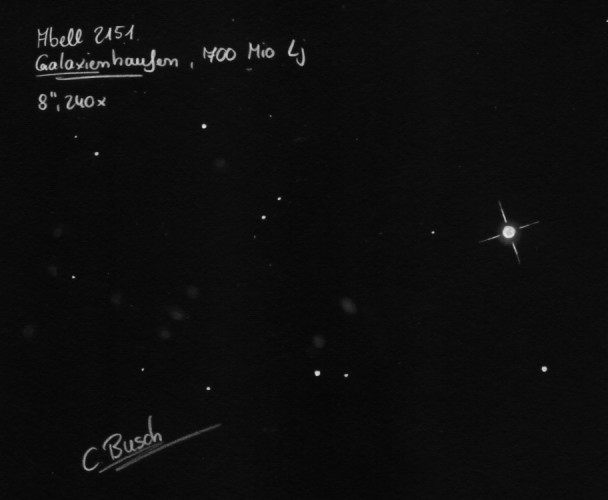 Abell 2151
Galaxienhaufen, 700 Mio Lj
8", 240x
C Busch